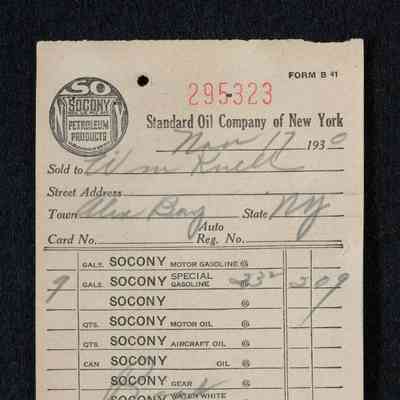 FORM B 41
SO
SOCONY
N Y
PETROLEUM
PRODUCTS
295323
Standard Oil Company of New York
Nov 17 1930
Sold to Wm Knell
Street Address
Town Alex Bay State NY
Auto
Card No. Reg. No.
GALS. SOCONY MOTOR GASOLINE @
9 GALS. SOCONY SPECIAL GASOLINE @ 23² 2 09
SOCONY @
QTS. SOCONY MOTOR OIL @
QTS. SOCONY AIRCRAFT OIL @
CAN SOCONY OIL @
SOCONY GEAR @
SOCONY WATER WHITE